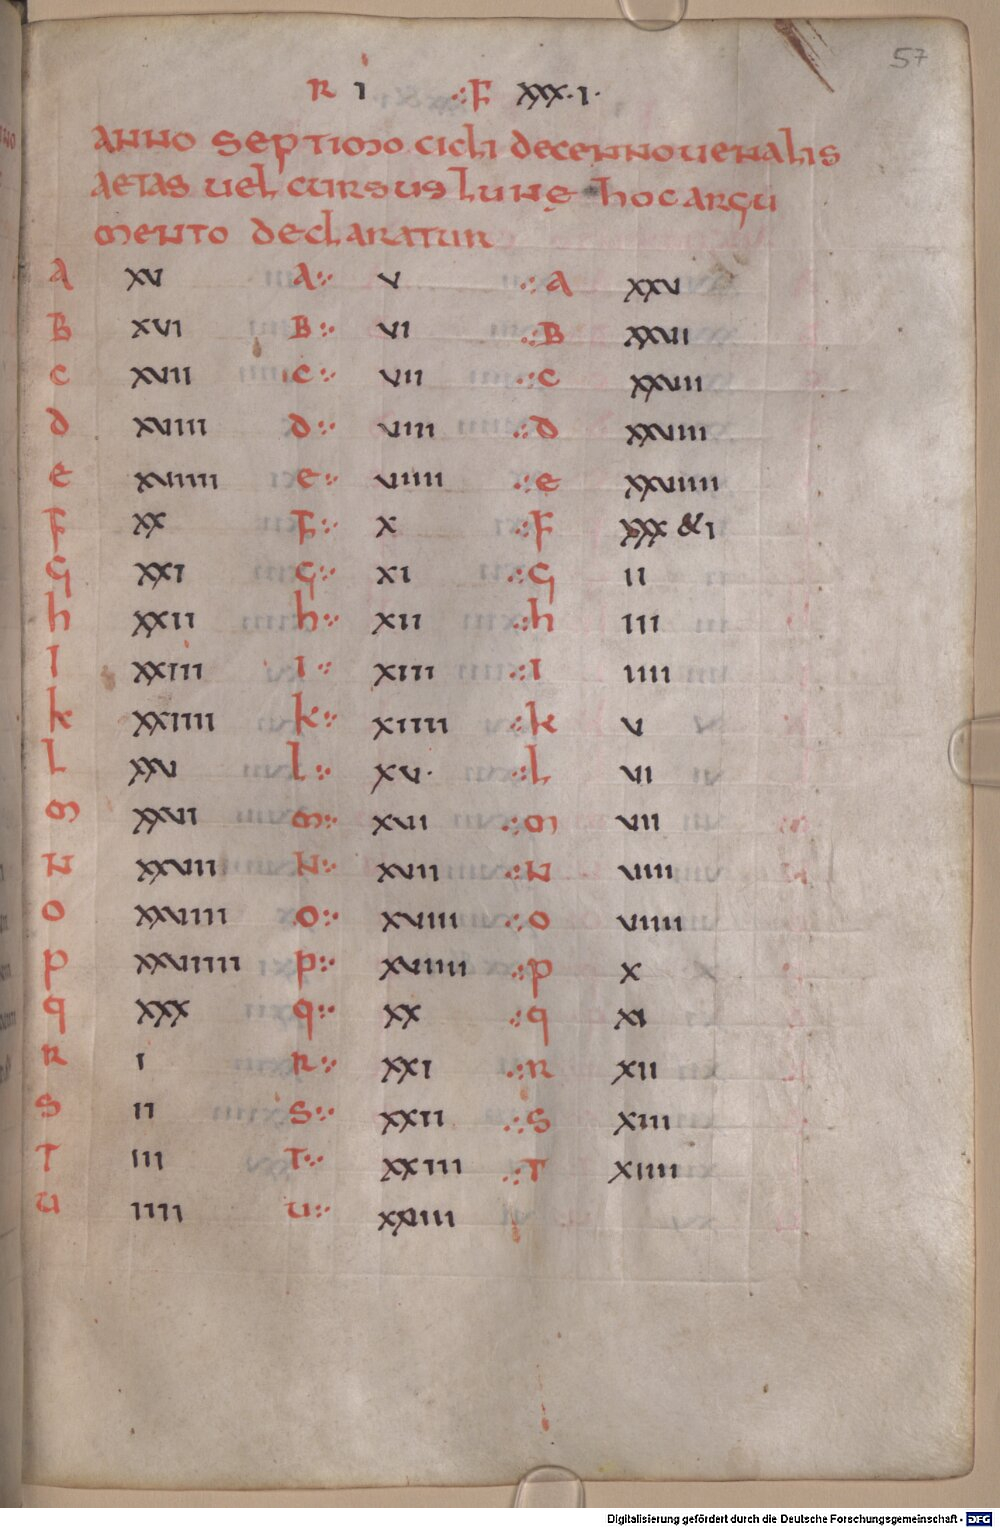 57
R I ·:F XXX·I·
ANNO SEPTIMO CICLI DECENNOUENALIS
AETAS UEL CURSUS LUNĘ HOC ARGU
MENTO DECLARATUR
A XV A:· V ·:A XXV
B XVI B:· VI ·:B XXVII
C XVII C:· VII ·:C XXVIII
D XVIIII D:· VIIII ·:D XXVIIII
E XVIIIII E:· VIIIII ·:E XXVIIIII
F XX F:· X ·:F XXX &I
G XXI G:· XI ·:G II
h XXII h:· XII ·:h III
I XXIII I:· XIII ·:I IIII
K XXIIII K:· XIIII ·:K V
L XXV L:· XV· ·:L VI
M XXVI M:· XVII ·:M VII
N XXVIII N:· XVII ·:N VIIII
O XXVIIII O:· XVIIII ·:O VIIII
P XXVIIIII P:· XVIIII ·:P X
q XXX q:· XX ·:q XI
R I R:· XXI ·:R XII
S II S:· XXII ·:S XIII
T III T:· XXIII ·:T XIIII
U IIII U:· XXIIII
Digitalisierung gefördert durch die Deutsche Forschungsgemeinschaft - DFG